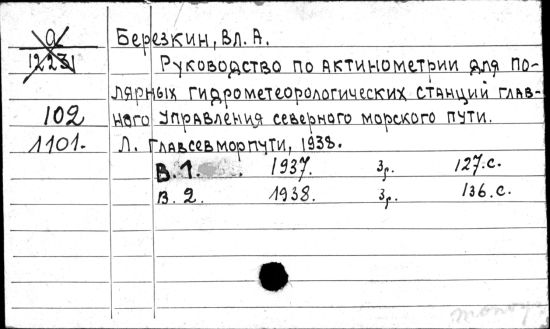 а
12231
102
1101.
Березкин, Вл. А.
Руководство по актинометрии для по-
лярных гидрометеорологических станций глав-
ного управления северного морского пути.
Л. Главсевморпути, 1938.
В. 1. 1937. 3р. 127.с.
В. 2. 1938. 3р. 136.с.